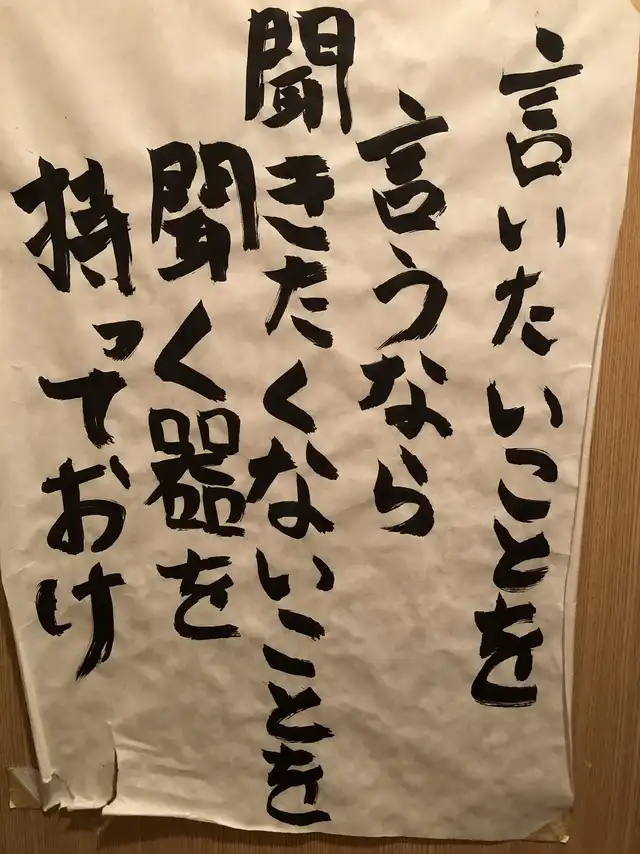 言いたいことを
言うなら
聞きたくないことを
聞く器を
持っておけ